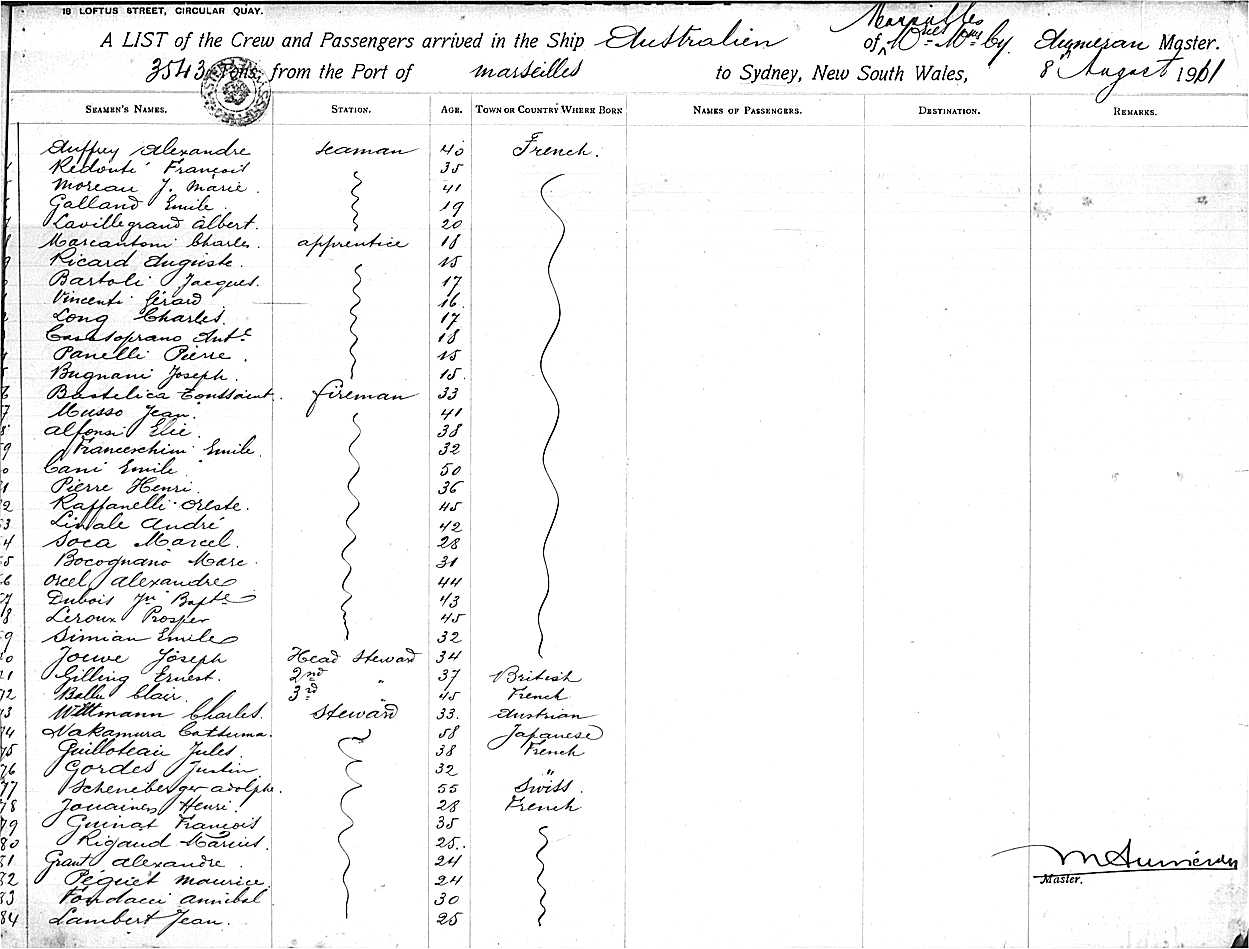 18 LOFTUS STREET, CIRCULAR QUAY.
A LIST of the Crew and Passengers arrived in the Ship Australien of Marseilles Burthen Master.
3543 Tons, from the Port of Marseilles to Sydney, New South Wales, 8th August 1901
SEAMEN'S NAMES. STATION. AGE. TOWN OR COUNTRY WHERE BORN NAMES OF PASSENGERS. DESTINATION. REMARKS.
Auffrey Alexandre seaman 40 French.
Redonté François 35
Moreau J. Marie 41
Galland Emile 19
Lavillegrand Albert. 20
Marcantoni Charles. apprentice 18
Ricard Auguste. 15
Bartoli Jacques. 17
Vincenti Gérard 16
Long Charles. 17
Casasoprano Antᵉ 18
Panelli Pierre 15
Bugnani Joseph. 15
Bastelica Toussaint. fireman 33
Musso Jean. 41
Alfonsi Elie. 38
Franceschini Emile. 32
Cani Emile 50
Pierre Henri. 36
Raffanelli Oreste. 45
Linale André 42
Soca Marcel. 28
Bocognano Marc. 31
Orcel Alexandre 44
Dubois Jn Bapte 43
Leroux Prosper 45
Simian Emile 32
Jouve Joseph Head Steward 34
Gilling Ernest. 2nd " 37 British
Ballu Clair. 3rd " 45 French
Wittmann Charles. Steward 33. Austrian
Nakamura Cattuma. 58 Japanese
Guilloteau Jules. 38 French
Gordes Justin 32 "
Scheneberger Adolphe. 55 Swiss.
Jouaines Henri. 28 French
Guinat François 35
Rigaud Marius. 25.
Grant Alexandre. 24
Péquet Maurice. 24
Fondacci Annibal 30
Lambert Jean. 25
Master.